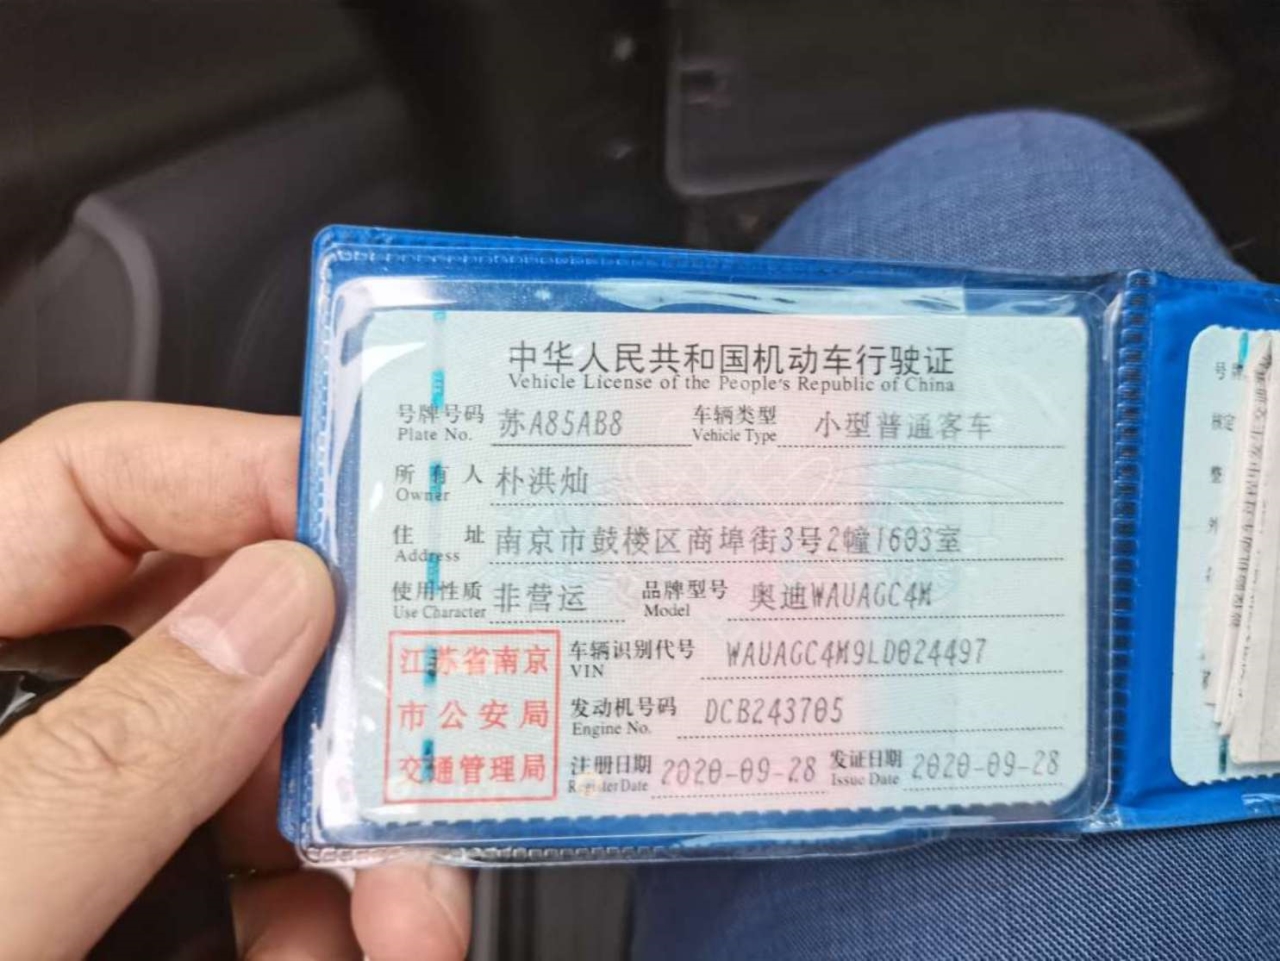 中华人民共和国机动车行驶证
Vehicle License of the People's Republic of China
号牌号码 苏A85AB8 车辆类型 小型普通客车
Plate No. Vehicle Type
所有人 朴洪灿
Owner
住址 南京市鼓楼区商埠街3号2幢1603室
Address
使用性质 非营运 品牌型号 奥迪WAUAGC4M
Use Character Model
江苏省南京
市公安局
交通管理局
车辆识别代号 WAUAGC4M9LD024497
VIN
发动机号码 DCB243705
Engine No.
注册日期 2020-09-28 发证日期 2020-09-28
Register Date Issue Date
号牌
核定
整
外